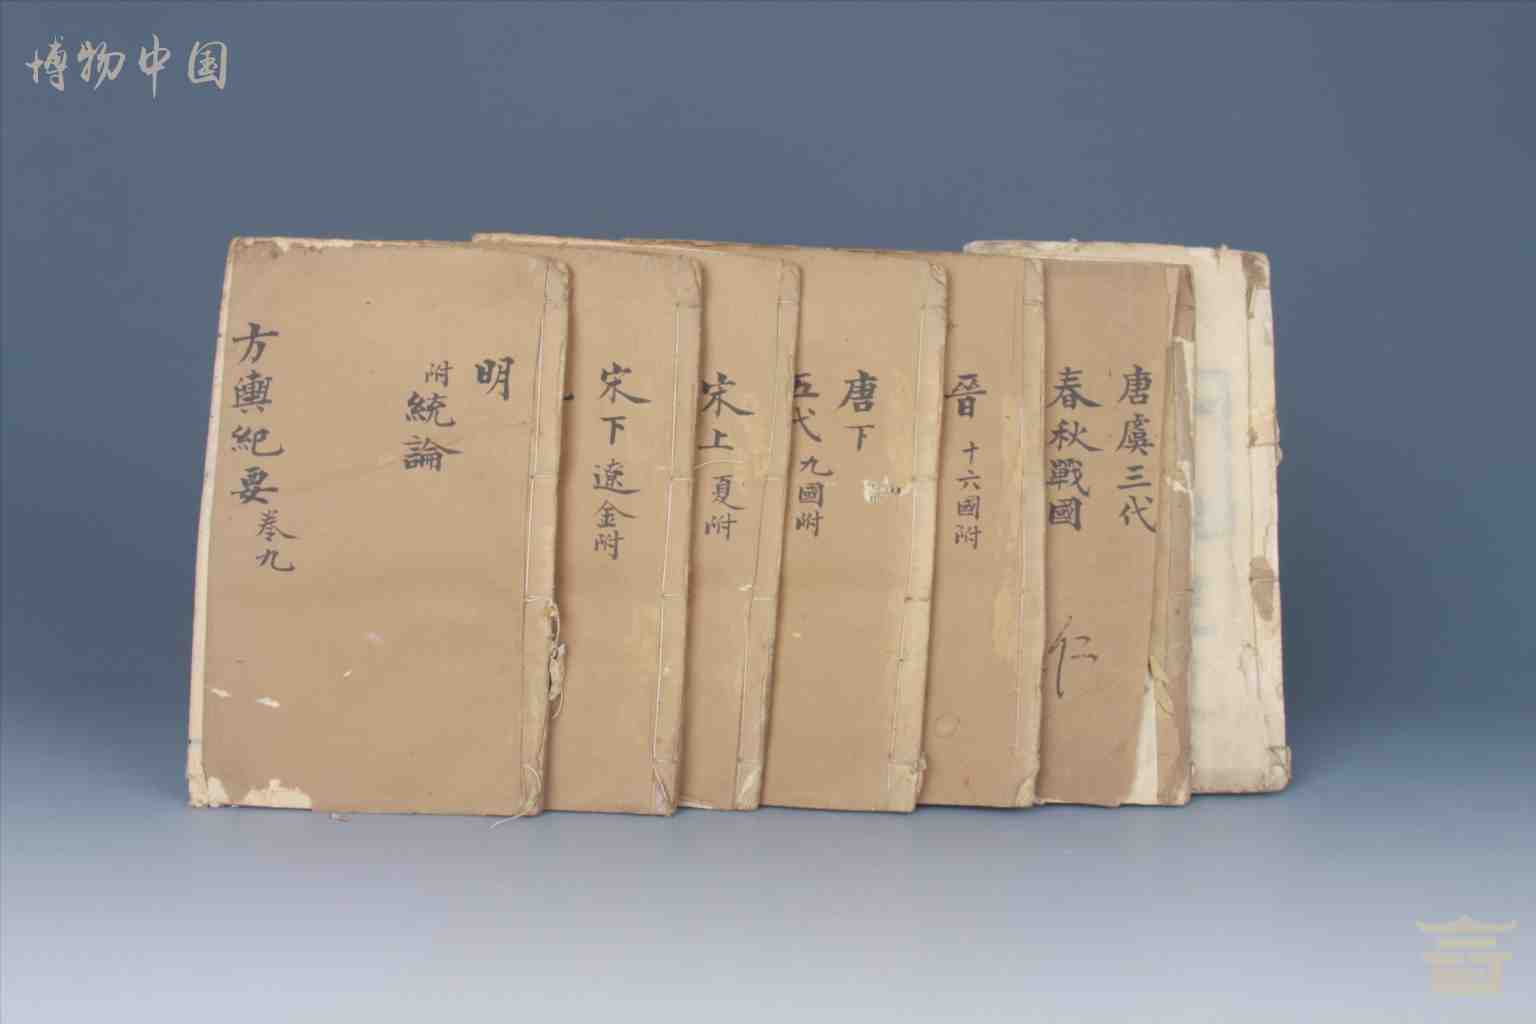 博物中国
唐虞三代
春秋戰國
仁
晉 十六國附
唐下
五代 九國附
宋上 夏附
宋下 遼金附
明
附統論
方輿紀要 卷九